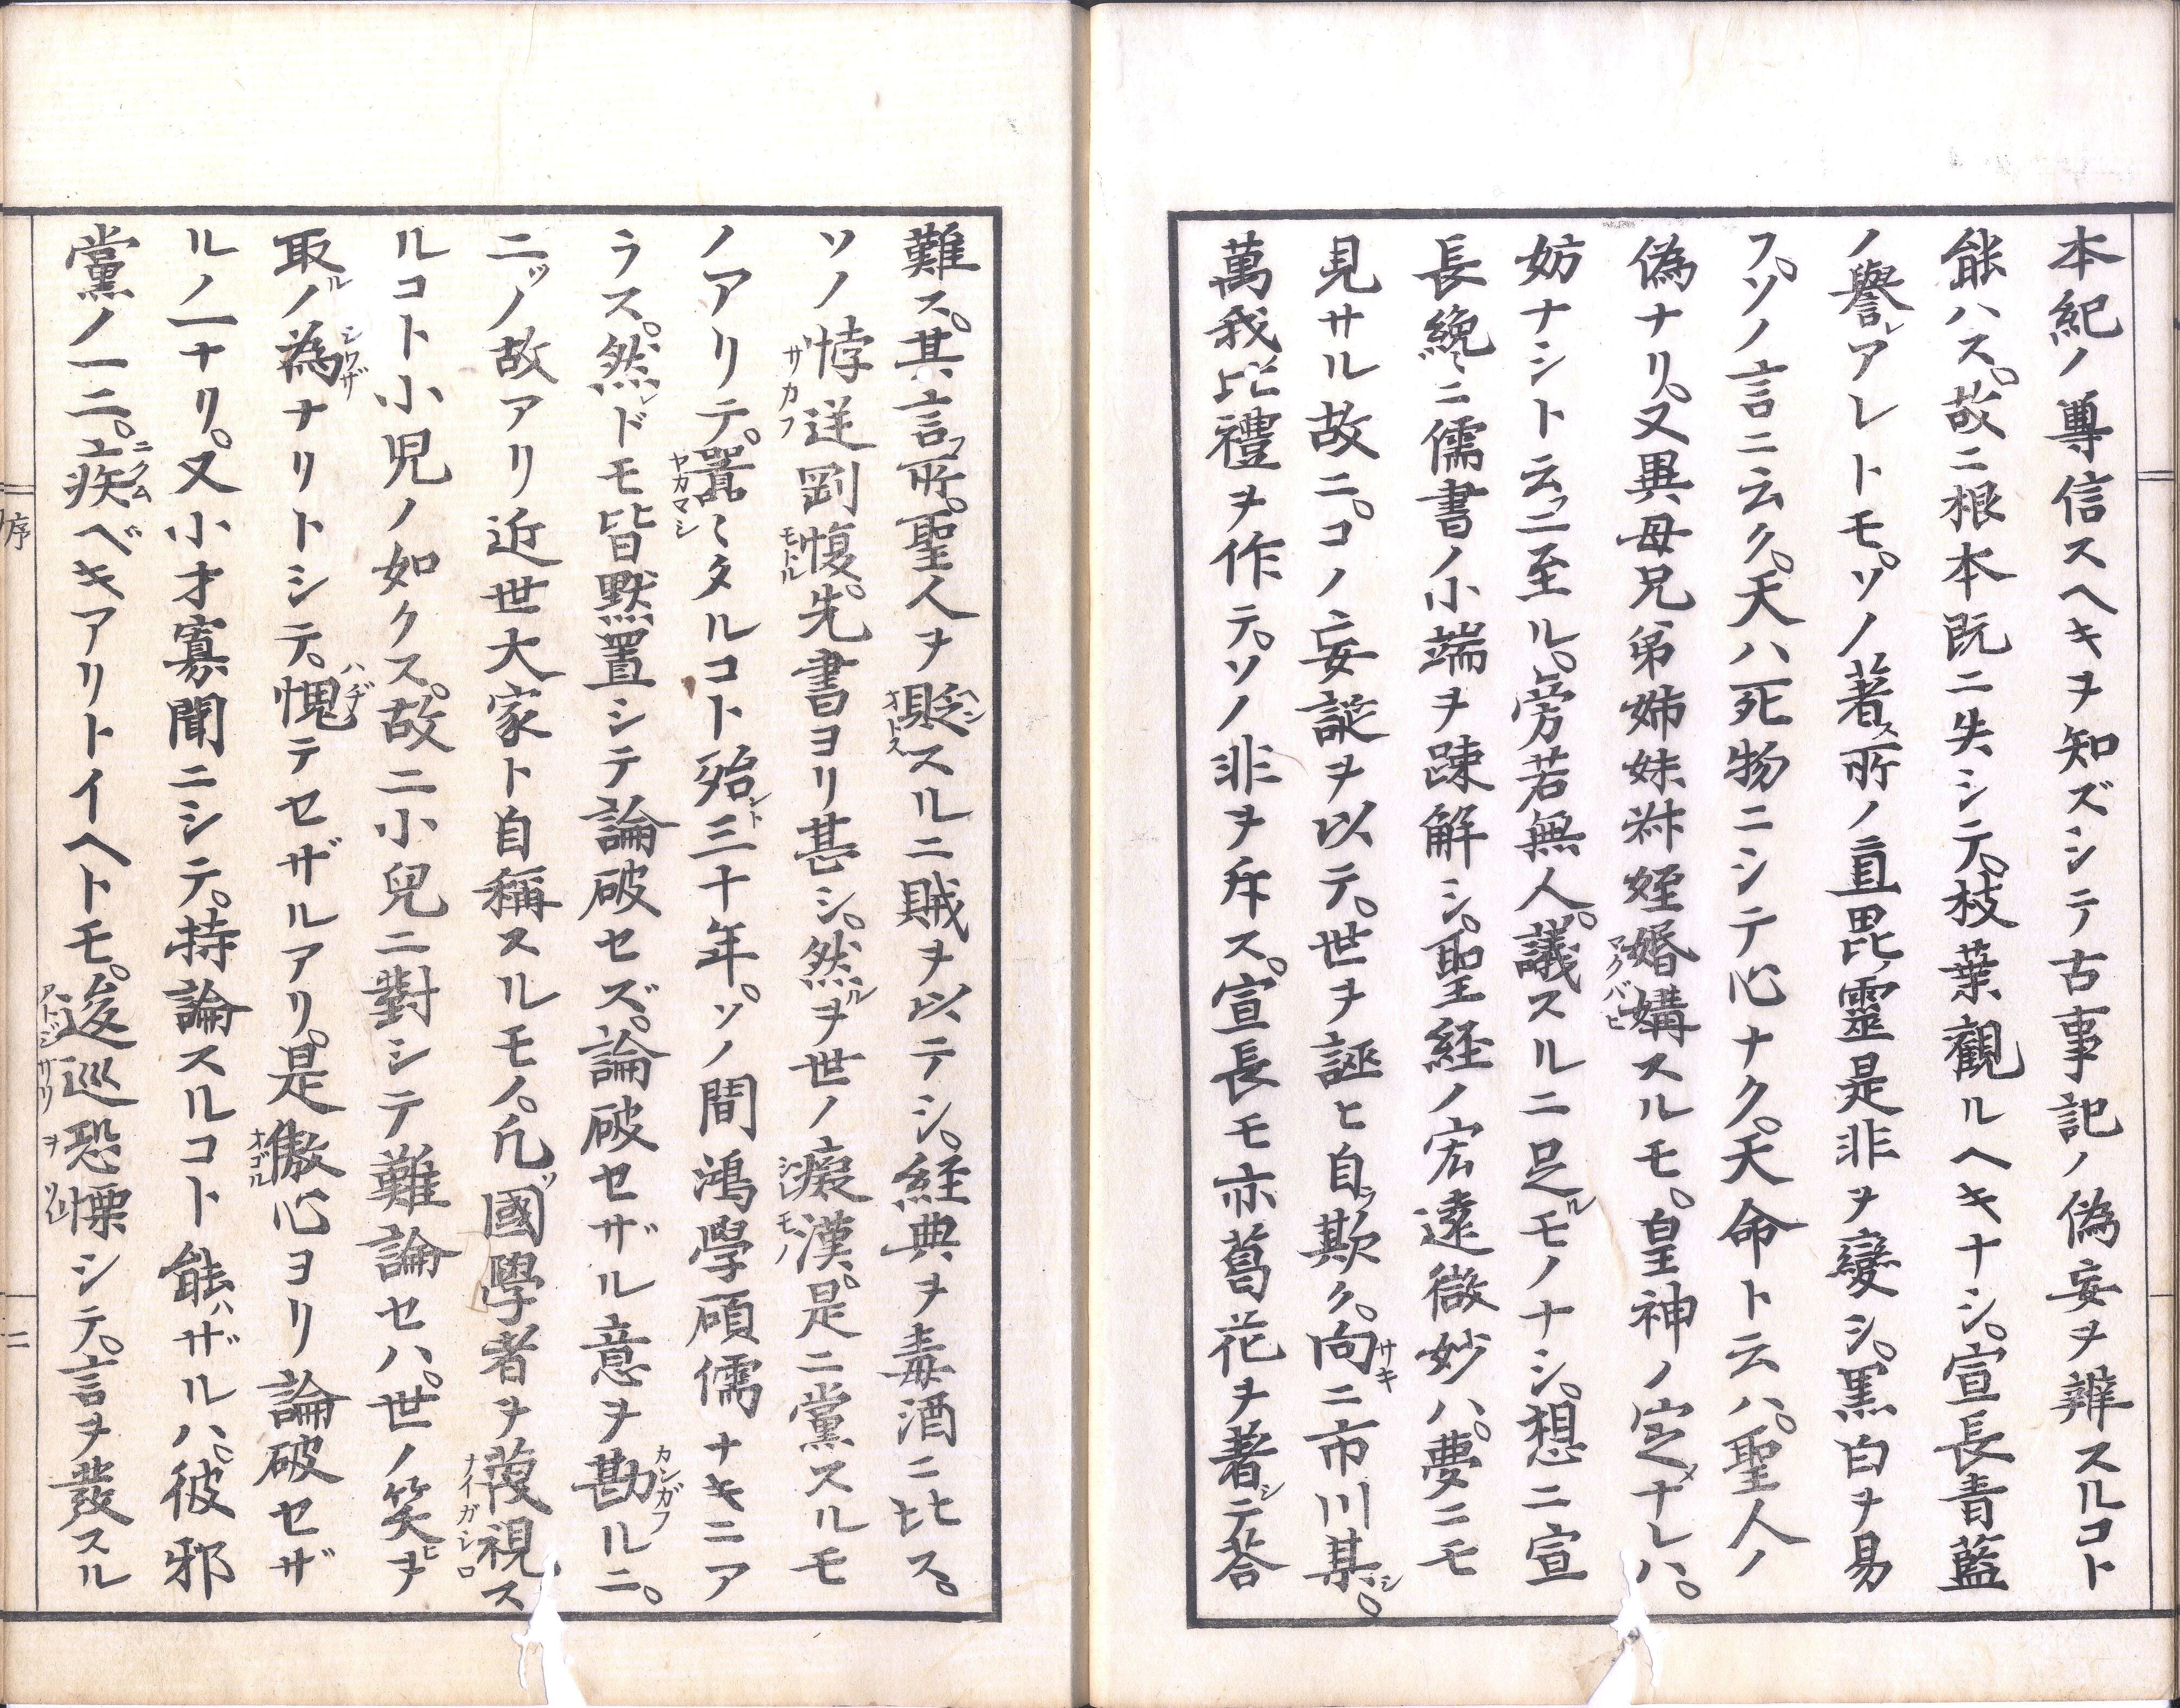 本紀ノ尊信スヘキヲ知ズシテ古事記ノ偽妄ヲ辨スルコト
能ハス。故ニ根本既ニ失シテ。枝葉観ルヘキナシ。宣長青藍
ノ譽レアレトモ。ソノ著ス所ノ直毘ノ靈是非ヲ變シ。黒白ヲ易
フ。ソノ言ニ云ク。天ハ死物ニシテ心ナク。天命ト云ハ。聖人ノ
偽ナリ。又異母兄弟姉妹舛姪婚媾アクバヒスルモ。皇神ノ定メナレハ。
妨ナシト云フニ至ル。旁若無人。議スルニ足ルモノナシ。想ニ宣
長纔ニ儒書ノ小端ヲ踈解シ。聖経ノ宏遠微妙ハ。夢ニモ
見サル故ニ。コノ妄誕ヲ以テ。世ヲ誣ヒ自ツ欺ク。向サキニ市川某シ。
萬我比禮ヲ作テ。ソノ非ヲ斥ス。宣長モ亦葛花ヲ著シテ答
難ス。其言フ所。聖人ヲ貶ヘンオトススルニ賊ヲ以テシ。経典ヲ毒酒ニ比ス。
ソノ悖逆サカフ剛愎モトル。先書ヨリ甚シ。然ルヲ世ノ癡漢シレモノ。是ニ黨スルモ
ノアリテ。囂ヤカマシミタルコト殆ント三十年。ソノ間鴻學碩儒ナキニア
ラス。然レドモ皆默置シテ論破セズ。論破セザル意ヲ勘カンガフルニ。
二ツノ故アリ近世大家ト自稱スルモノ。凡ソ國學者ヲ蔑視ナイガシロス
ルコト小児ノ如クス。故ニ小兒ニ對シテ難論セハ。世ノ笑ヒヲ
取ルノ為シワザナリトシテ。愧ハヂテセザルアリ。是傲オゴル心ヨリ論破セザ
ルノ一ナリ。又小才寡聞ニシテ。持論スルコト能ハザルハ。彼邪
黨ノ一二。疾ニクムベキアリトイヘトモ。逡巡アトジサリ恐慄シテ。言ヲ發スル
序
二